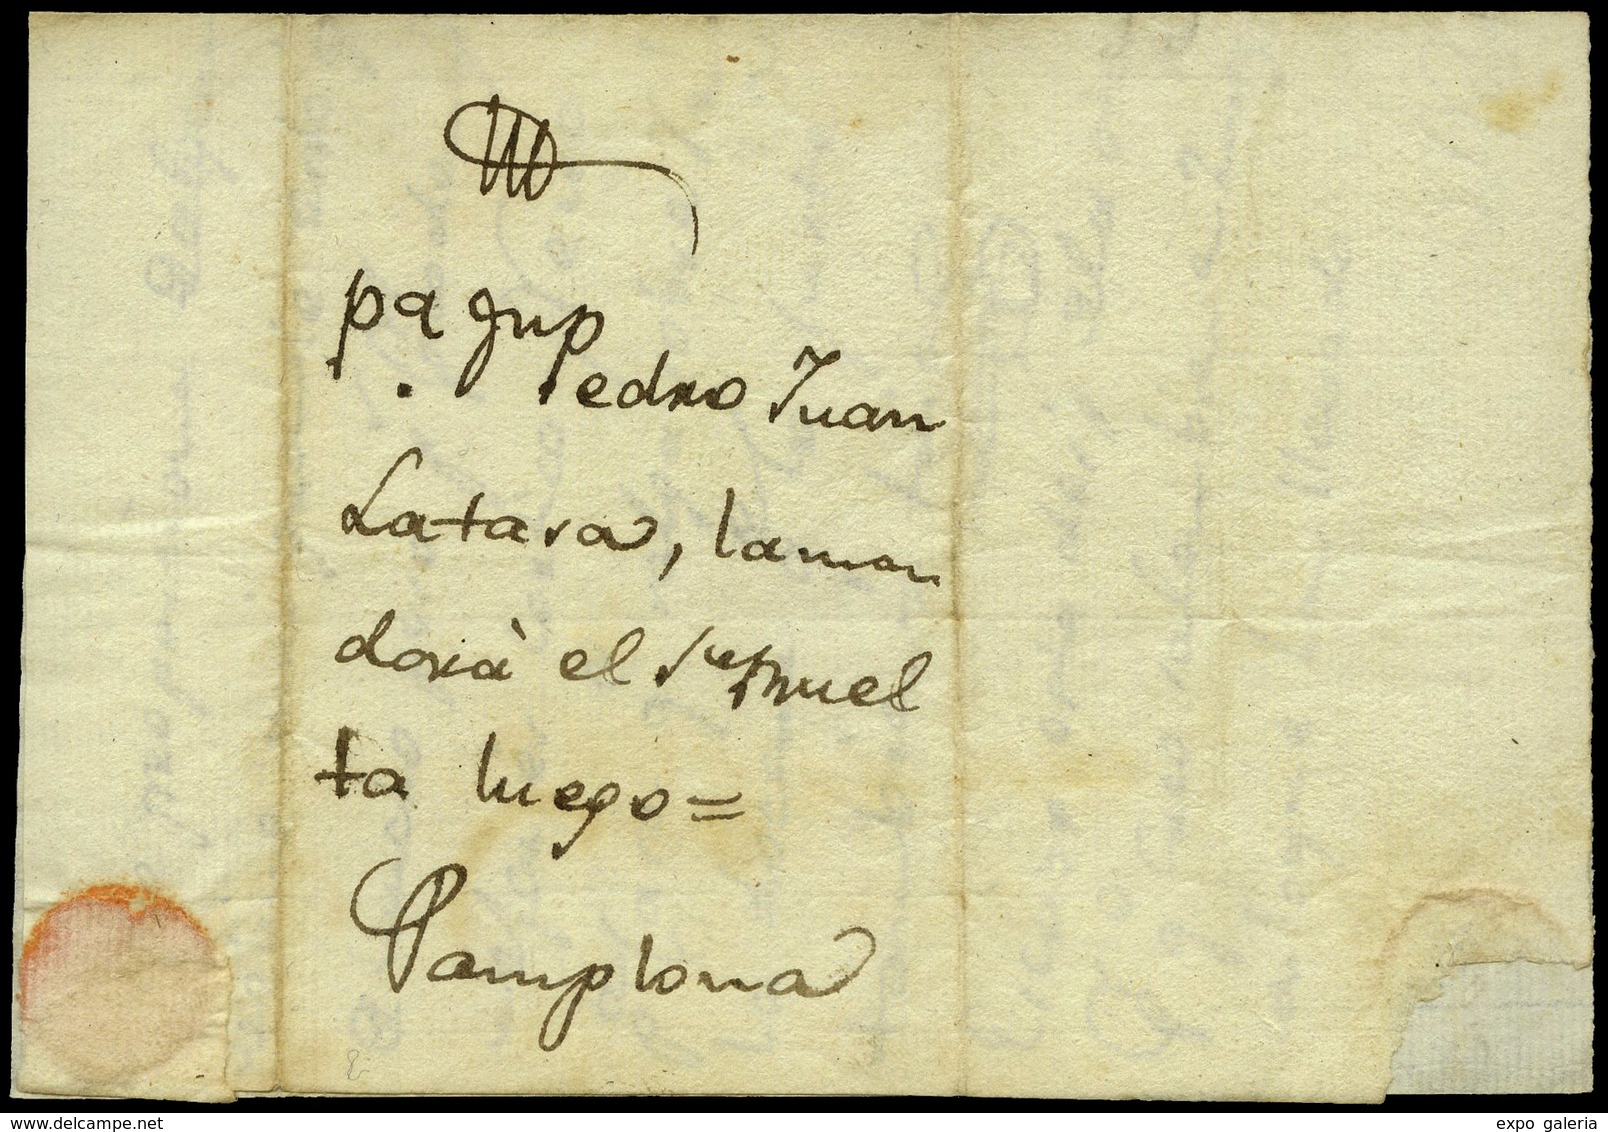 pq Jup
Pedro Juan
Latasa, laman
dorà el Sre Bruel
ta luego=
Pamplona
www.delcampe.net
expo galeria